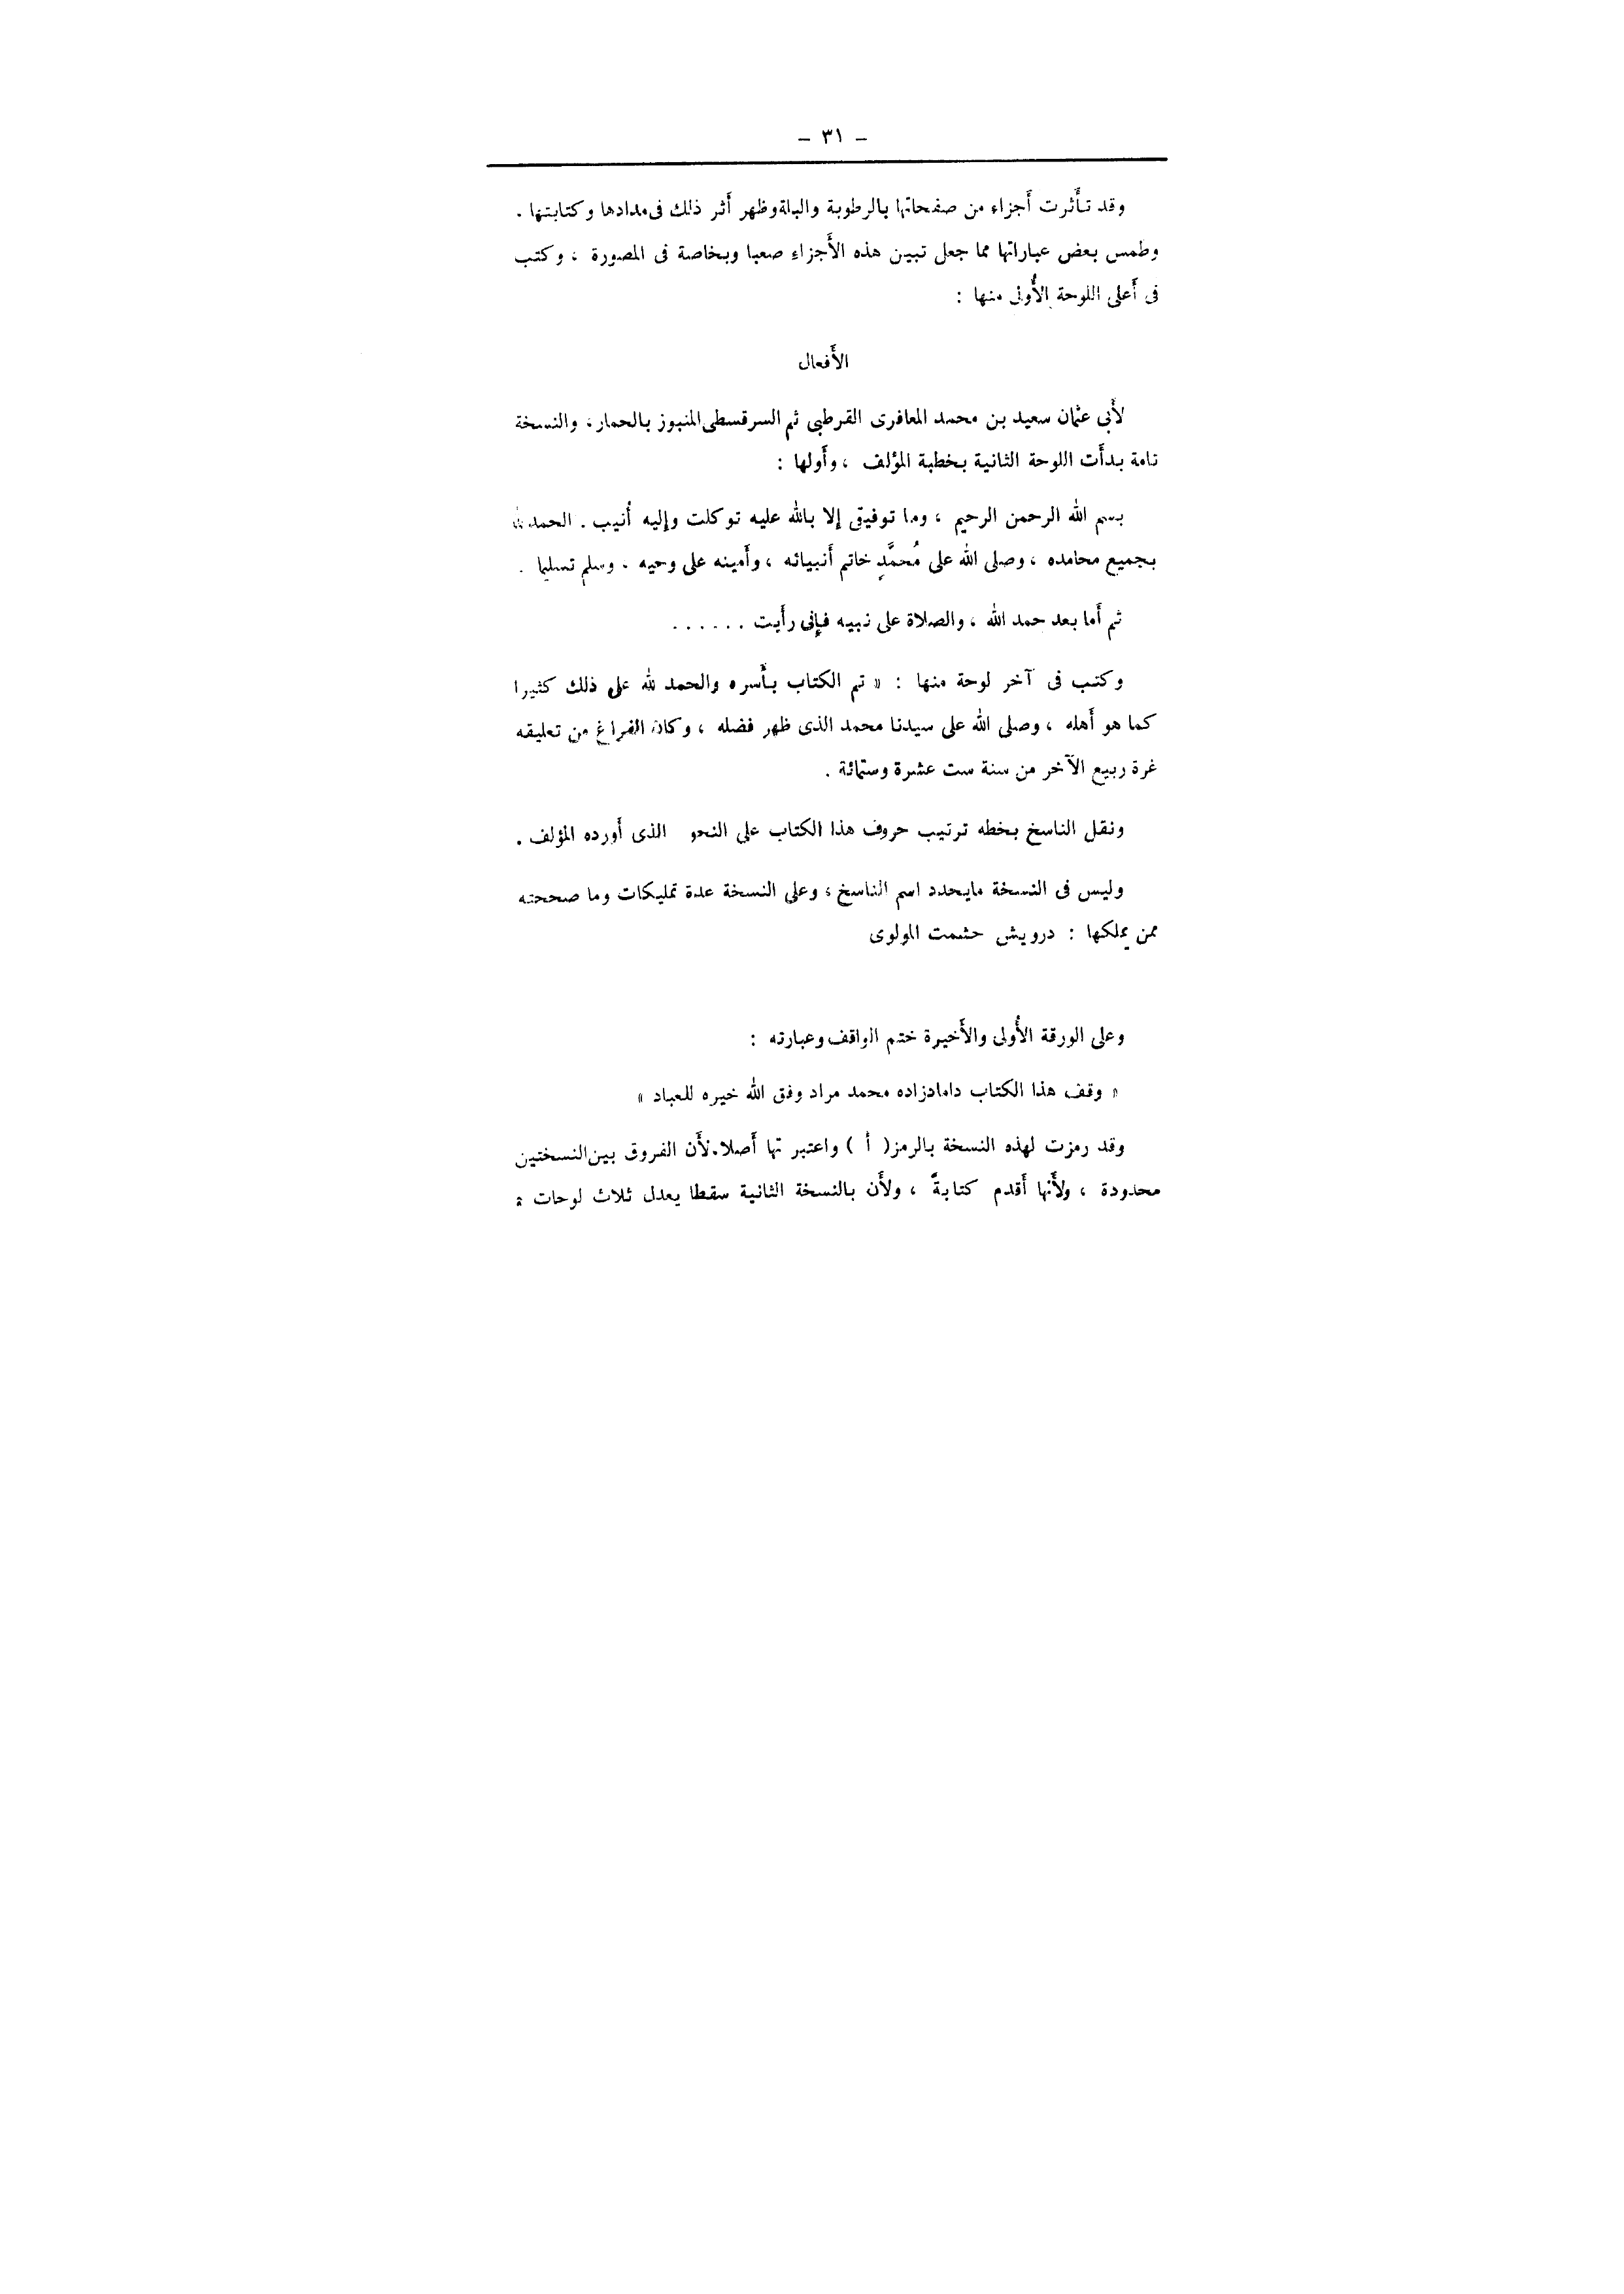 – ٣١ –
وقد تأَثرت أَجزاء من صفحاتها بالرطوبة والبلة وظهر أَثر ذلك فى مدادها وكتابتها .
وطمس بعض عباراتها مما جعل تبين هذه الأَجزاءِ صعبا وبخاصة فى المصورة ، وكتب
فى أَعلى اللوحة الأُولى منها :
الأَفعال
لأَبى عثمان سعيد بن محمد المعافرى القرطبى ثم السرقسطى المنبوز بالحمار ، والنسخة
تامة بدأَت اللوحة الثانية بخطبة المؤلف ، وأَولها :
بسم الله الرحمن الرحيم ، وما توفيقى إلا بالله عليه توكلت وإليه أنيب . الحمد لله
بجميع محامده ، وصلى الله على مُحمَّدٍ خاتم أَنبيائه ، وأَمينه على وحيه . وسلم تسليما .
ثم أَما بعد حمد الله ، والصلاة على نبيه فإنى رأَيت . . . . . .
وكتب فى آخر لوحة منها : « تم الكتاب بأَسره والحمد لله على ذلك كثيرا
كما هو أَهله ، وصلى الله على سيدنا محمد الذى ظهر فضله ، وكان الفراغ من تعليقه
غرة ربيع الآخر من سنة ست عشرة وستمائة .
ونقل الناسخ بخطه ترتيب حروف هذا الكتاب على النحو الذى أَورده المؤلف .
وليس فى النسخة مايحدد اسم الناسخ ، وعلى النسخة عدة تمليكات وما صححته
ممن يملكها : درويش حشمت المولوى
وعلى الورقة الأُولى والأَخيرة ختم الواقف وعبارته :
« وقف هذا الكتاب دامادزاده محمد مراد وفق الله خيره للعباد »
وقد رمزت لهذه النسخة بالرمز ( أ ) واعتبر تها أَصلا . لأَن الفروق بين النسختين
محدودة ، ولأَنها أَقدم كتابةً ، ولأَن بالنسخة الثانية سقطا يعدل ثلاث لوحات ،